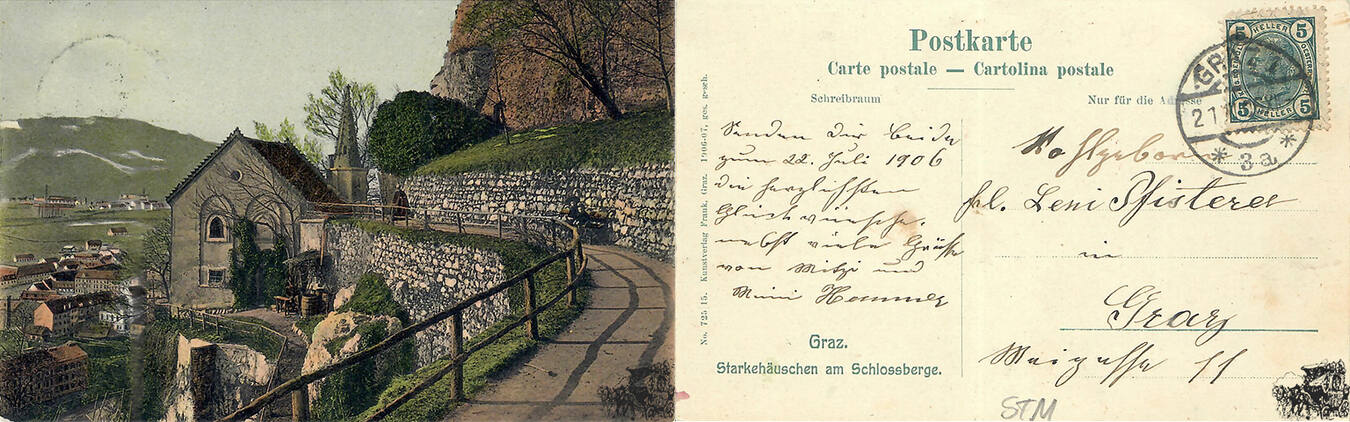 Postkarte
Carte postale — Cartolina postale
Schreibraum
Nur für die Adresse
5 HELLER 5
5 HELLER 5
GRAZ 1
21
* 3a *
Senden Dir beide
zum 22. Juli 1906
die herzlichsten
Glückwünsche,
nebst viele Grüße
von Mitzi und
Mimi Hammer
Wohlgeboren
Frl. Leni Pfisterer
in
Graz
11
Graz.
Starkehäuschen am Schlossberge.
No. 725 15. Kunstverlag Frank, Graz. 1906-07, ges. gesch.
STM